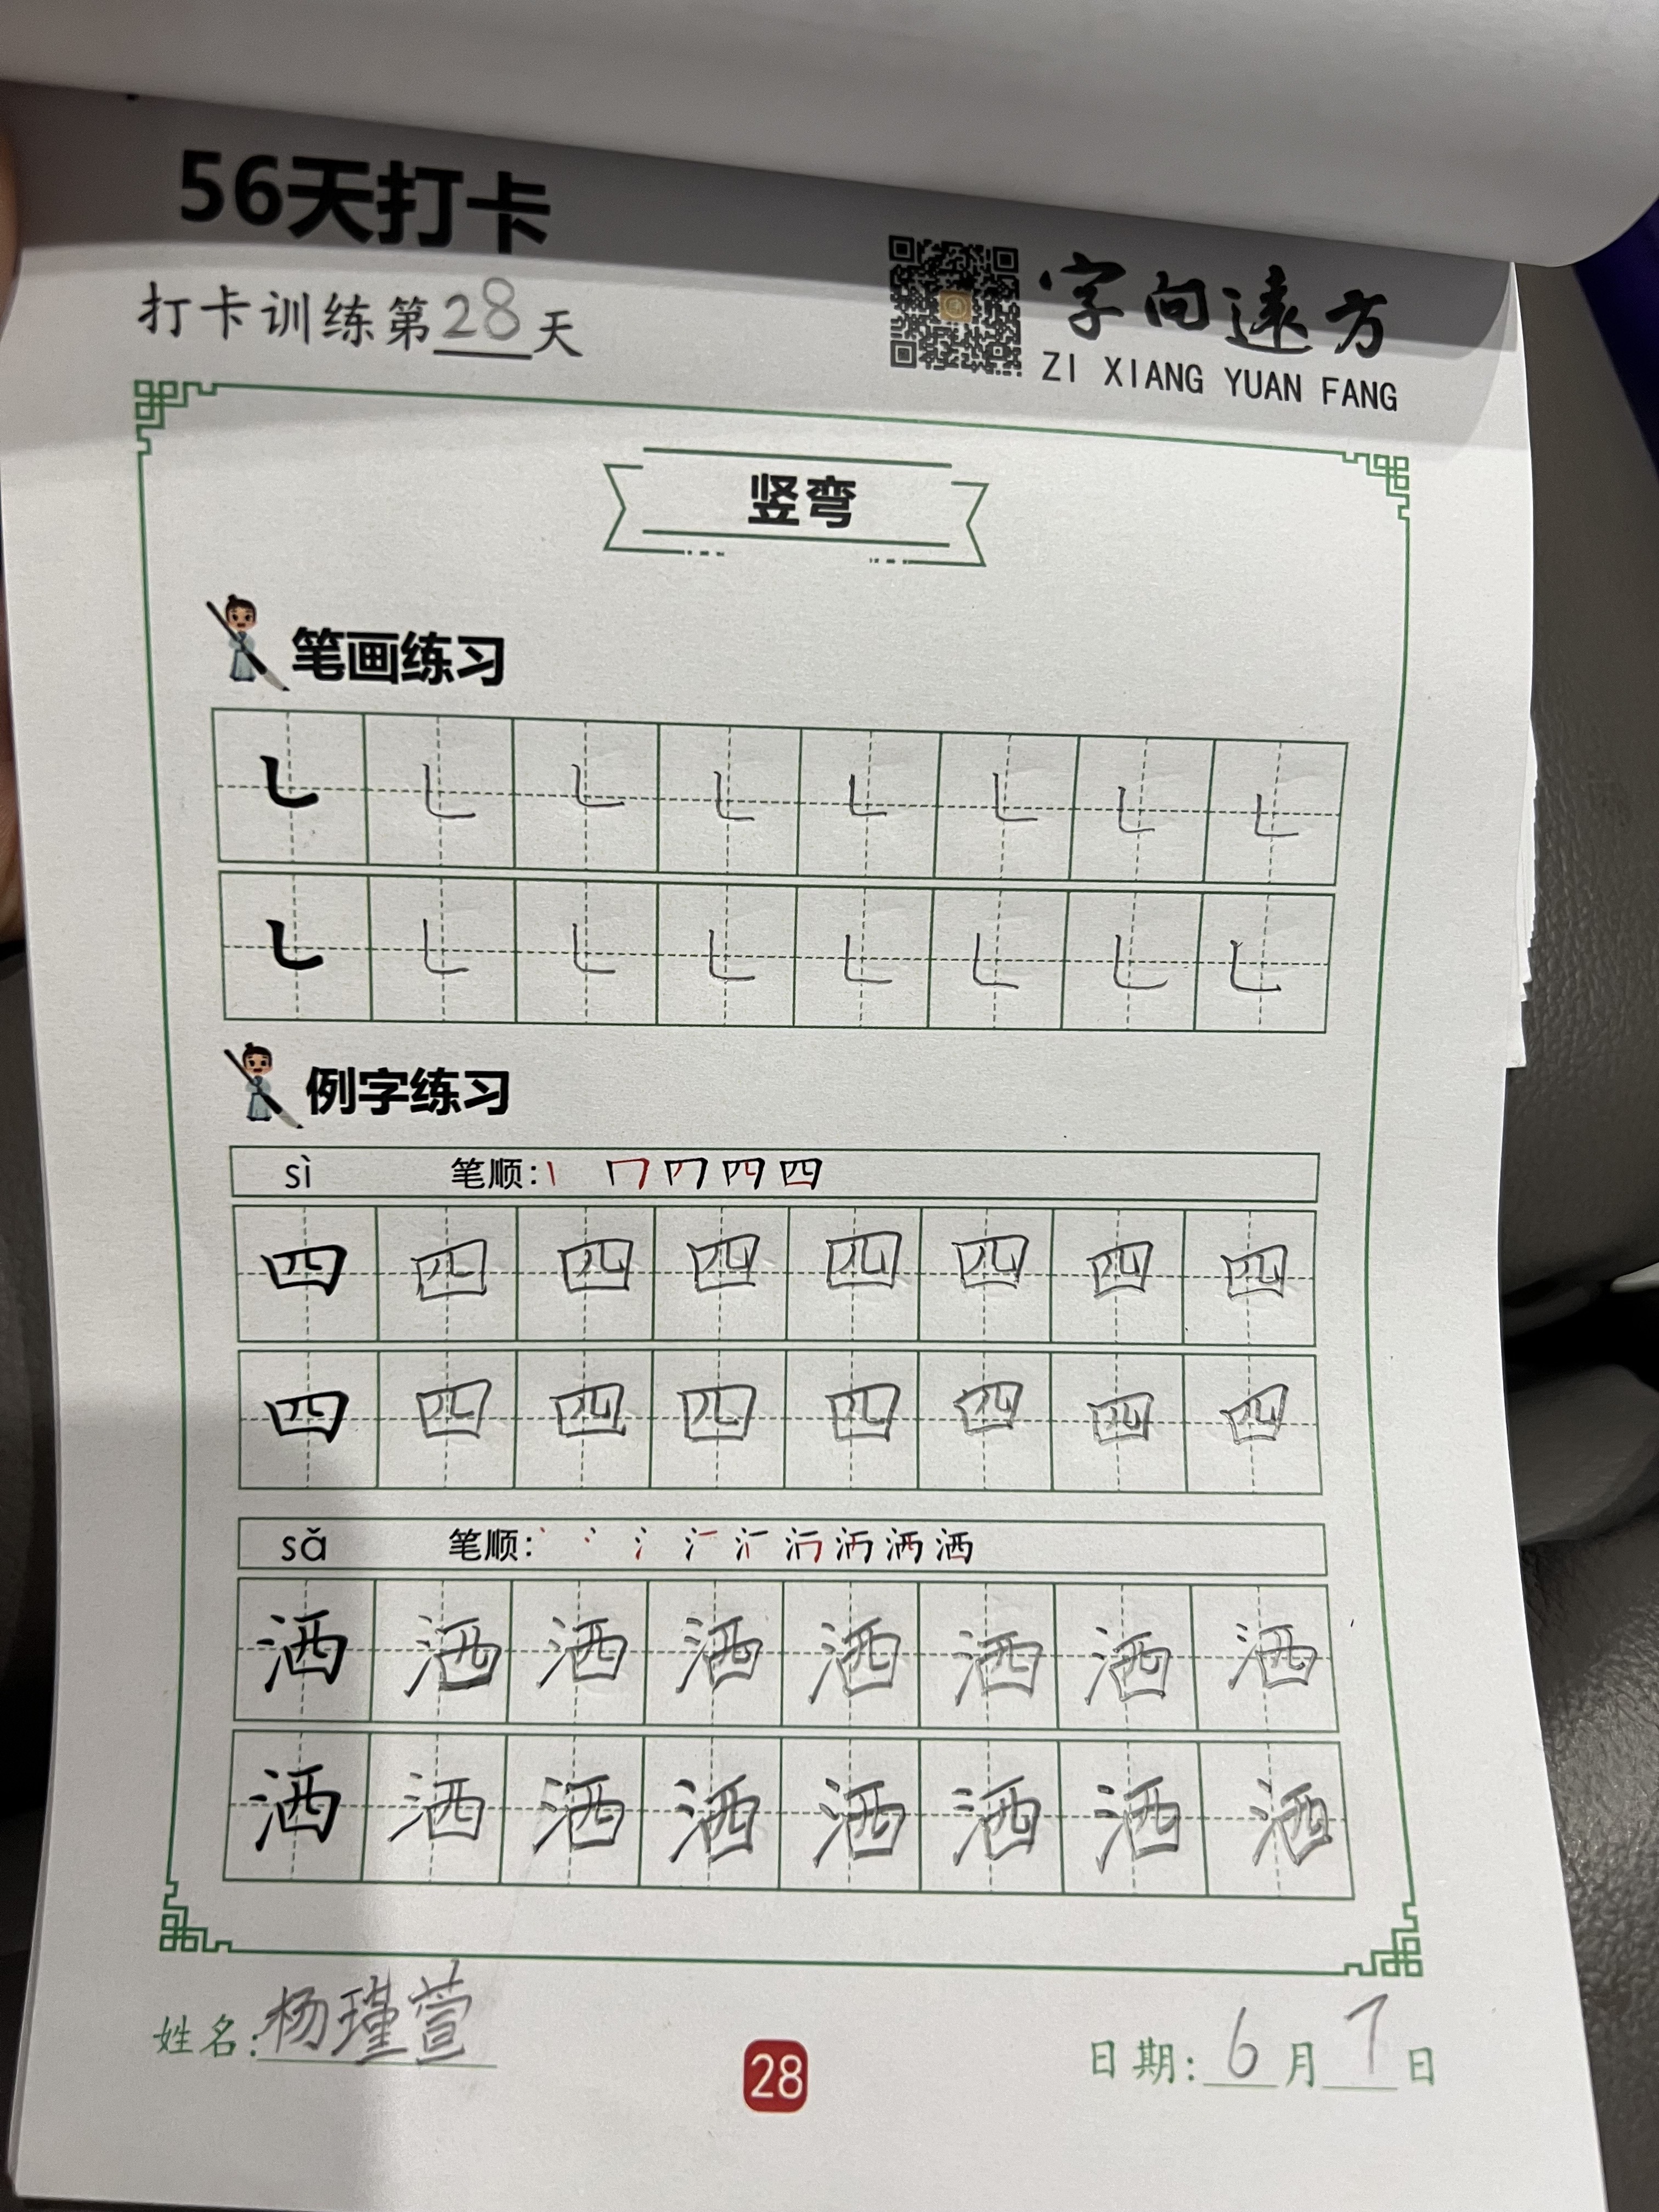 56天打卡
打卡训练第28天
字向远方
ZI XIANG YUAN FANG
竖弯
笔画练习
㇄ ㇄ ㇄ ㇄ ㇄ ㇄ ㇄ ㇄
㇄ ㇄ ㇄ ㇄ ㇄ ㇄ ㇄ ㇄
例字练习
sì 笔顺:
四 四 四 四 四 四 四 四
四 四 四 四 四 四 四 四
sǎ 笔顺:
洒 洒 洒 洒 洒 洒 洒 洒
洒 洒 洒 洒 洒 洒 洒 洒
姓名:杨瑾萱
28
日期:6月7日